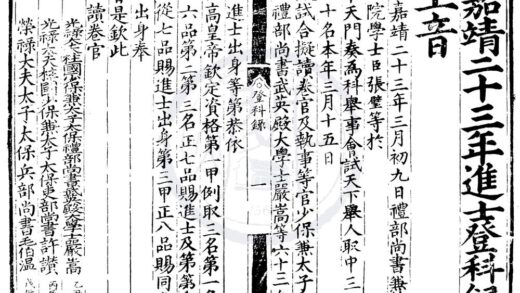 嘉靖二十三年進士登科
玉音
嘉靖二十三年三月初九日禮部尚書兼
院學士臣張璧等於
天門奏爲科舉事會試天下舉人取中三
十名本年三月十五日
試合擬讀卷官及執事等官少保兼太子
禮部尚書武英殿大學士嚴嵩等六十三
登科錄
一
進士出身等第恭依
高皇帝欽定資格第一甲例取三名第一名
六品第二第三名正七品賜進士及第第
從七品賜進士出身第三甲正八品賜同
出身奉
旨是欽此
讀卷官
光祿大夫柱國少保兼太子太保禮部尚書武英殿大學士嚴嵩
光祿大夫柱國少保兼太子太保吏部尚書許讚
榮祿大夫太子太保兵部尚書毛伯溫